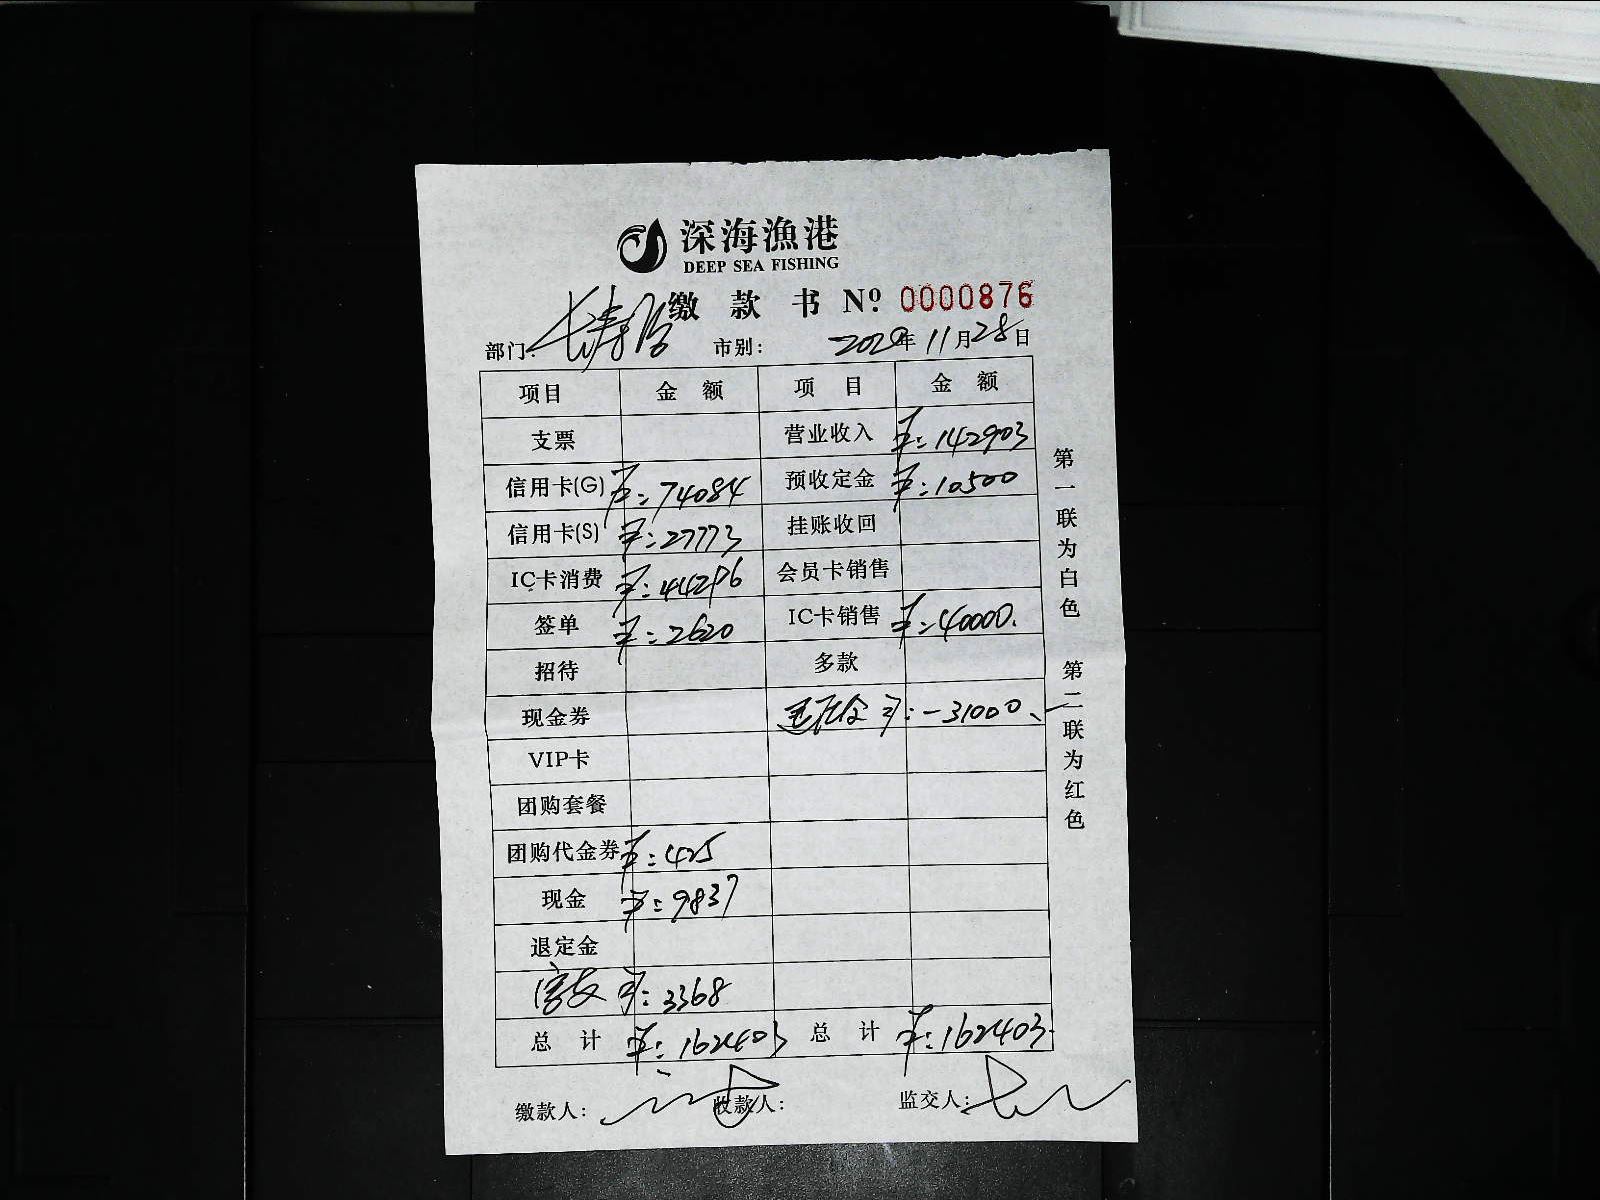 深海漁港
DEEP SEA FISHING
缴款书 Nº 0000876
部门: 长寿路 市别: 2020年11月28日
项目 金额 项目 金额
支票 营业收入 ¥:142903
信用卡(G) ¥:74084 预收定金 ¥:10500
信用卡(S) ¥:27773 挂账收回
IC卡消费 ¥:44296 会员卡销售
签单 ¥:2620 IC卡销售 ¥:40000.
招待 多款
现金券 ¥:-31000、
VIP卡
团购套餐
团购代金券 ¥:425
现金 ¥:9837
退定金
¥:3368
总计 ¥:162403 总计 ¥:162403.
缴款人: 收款人: 监交人:
第一联为白色 第二联为红色